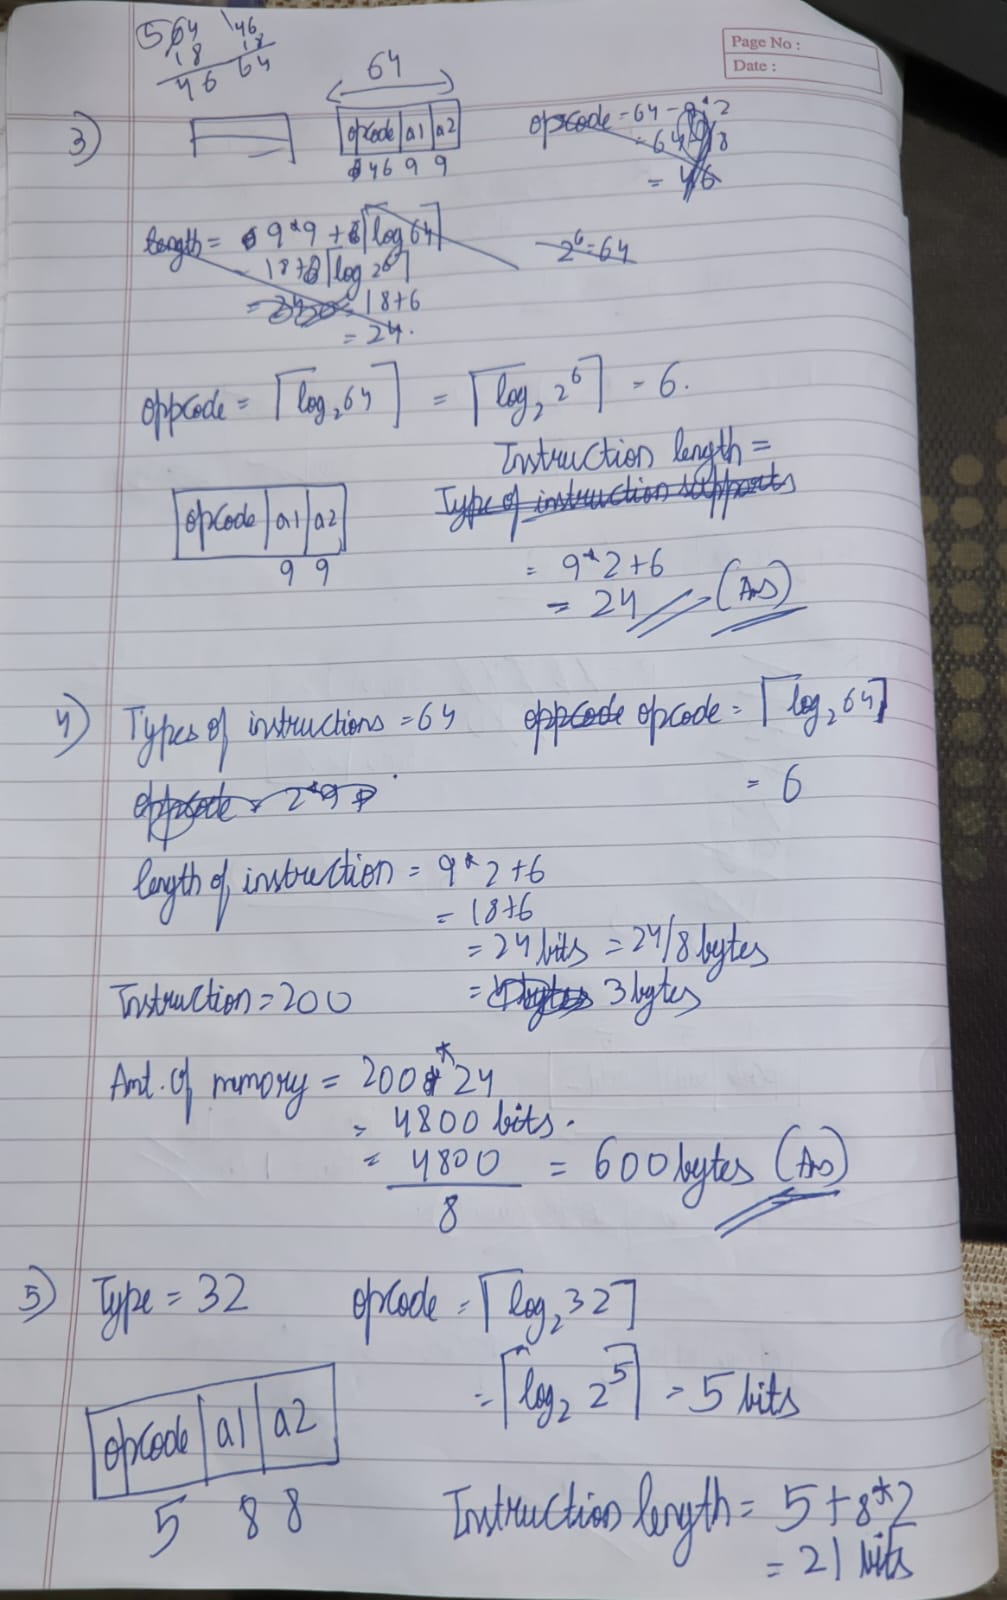 564 46
18 18
46 64
Page No :
Date :
64
3)
opcode a1 a2
46 9 9
opcode = 64 - 9*2
= 64 - 18
= 46
length = 9*9 + ⌈log 64⌉
18+ ⌈log 2⁶⌉
= 18+6
= 24.
2⁶=64
oppcode = ⌈log₂64⌉ = ⌈log₂ 2⁶⌉ = 6.
Instruction length =
Type of instruction supports
opcode a1 a2
9 9
= 9*2+6
= 24 (Ans)
4) Types of instructions = 64 oppcode opcode = ⌈log₂64⌉
= 6
oppcode = 2*9
length of instruction = 9*2+6
= 18+6
= 24 bits = 24/8 bytes
Instruction = 200 = 3 bytes
Amt. of memory = 200 * 24
= 4800 bits.
= 4800 = 600 bytes (Ans)
8
5) Type = 32 opcode = ⌈log₂32⌉
= ⌈log₂ 2⁵⌉ = 5 bits
opcode a1 a2
5 8 8
Instruction length = 5+8*2
= 21 bits